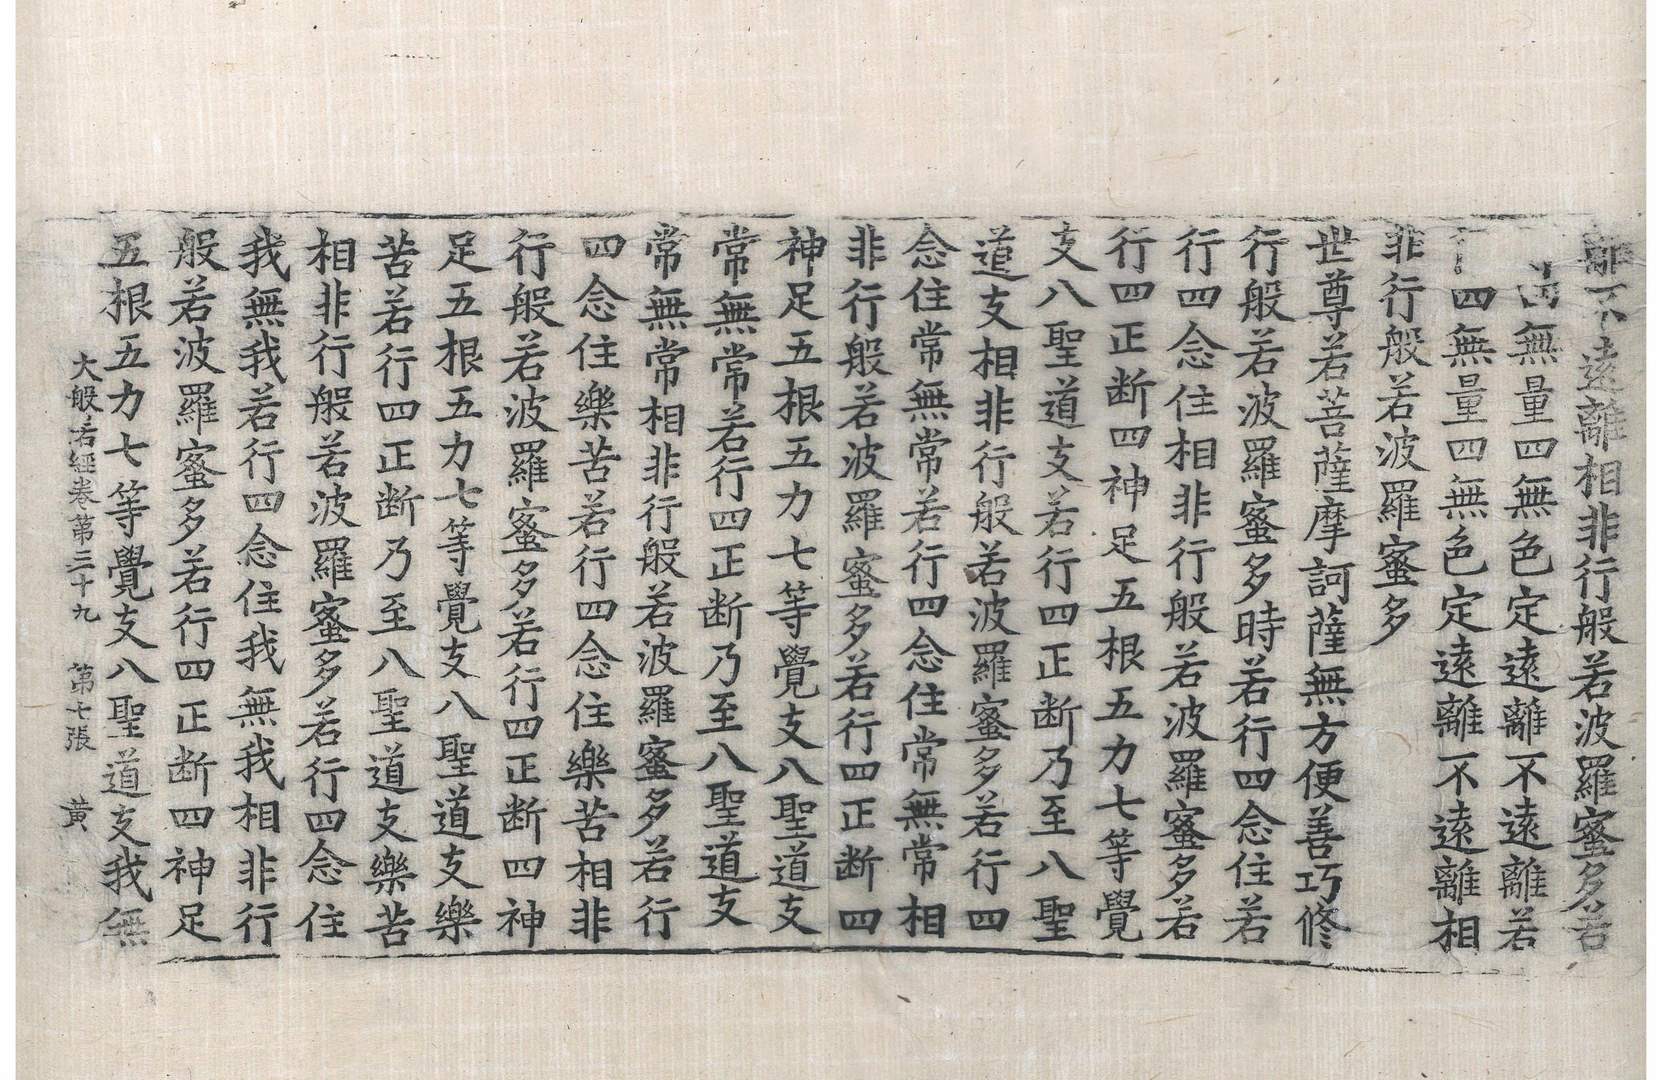 離不遠離相非行般若波羅蜜多若
四無量四無色定遠離不遠離若
四無量四無色定遠離不遠離相
非行般若波羅蜜多
世尊若菩薩摩訶薩無方便善巧修
行般若波羅蜜多時若行四念住若
行四念住相非行般若波羅蜜多若
行四正断四神足五根五力七等覺
支八聖道支若行四正断乃至八聖
道支相非行般若波羅蜜多若行四
念住常無常若行四念住常無常相
非行般若波羅蜜多若行四正断四
神足五根五力七等覺支八聖道支
常無常若行四正断乃至八聖道支
常無常相非行般若波羅蜜多若行
四念住樂苦若行四念住樂苦相非
行般若波羅蜜多若行四正断四神
足五根五力七等覺支八聖道支樂
苦若行四正断乃至八聖道支樂苦
相非行般若波羅蜜多若行四念住
我無我若行四念住我無我相非行
般若波羅蜜多若行四正断四神足
五根五力七等覺支八聖道支我無
大般若經卷第三十九 第七張 黄